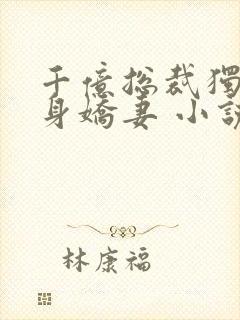 千億総裁獨
身嬌妻 小說
林康福